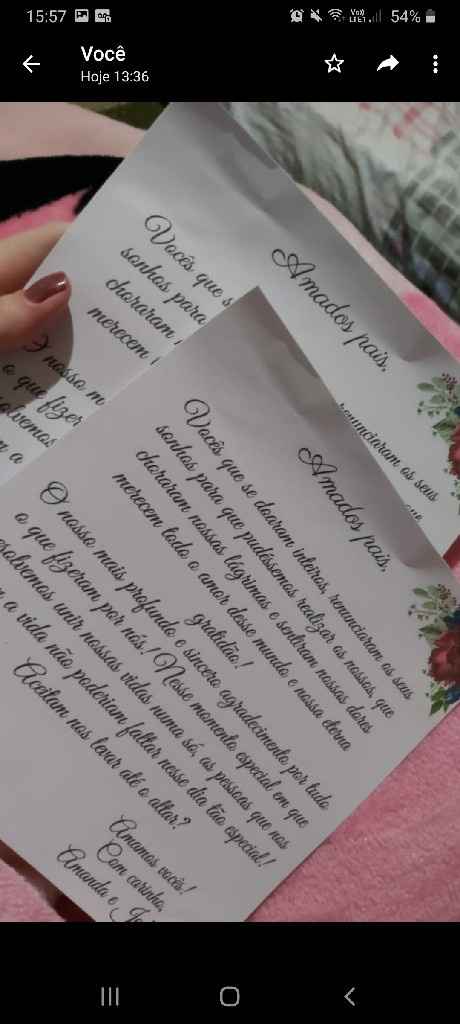 15:57
54%
Você
Hoje 13:36
Amados pais,
Vocês, que s
sonhos para
choraram
merecem
renunciaram os seus
que
O nosso m
o que fizer
solvemos
m a
Amados pais,
Vocês, que se doaram inteiros, renunciaram os seus
sonhos para que pudéssemos realizar os nossos, que
choraram nossas lágrimas e sentiram nossas dores
merecem todo o amor desse mundo e nossa eterna
gratidão!
O nosso mais profundo e sincero agradecimento por tudo
o que fizeram por nós! Nesse momento especial em que
esolvemos unir nossas vidas numa só, as pessoas que nos
m a vida não poderiam faltar nesse dia tão especial!
Aceitam nos levar até o altar?
Amamos vocês!
Com carinho,
Amanda e Jo